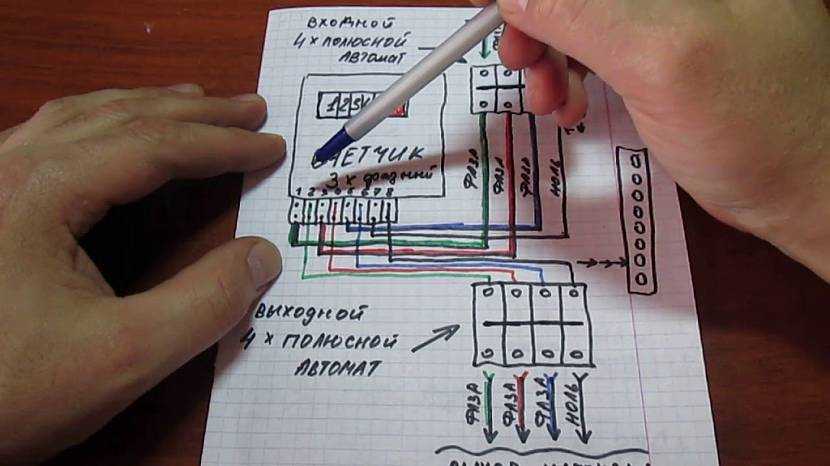 ВХОДНОЙ
4 х ПОЛЮСНОЙ
АВТОМАТ
СЧЕТЧИК
3 х фазный
1 2 3 4 5 6 7 8
ФАЗА
ФАЗА
ФАЗА
НОЛЬ
ВЫХОДНОЙ
4 х ПОЛЮСНОЙ
АВТОМАТ
ФАЗА
ФАЗА
ФАЗА
НОЛЬ